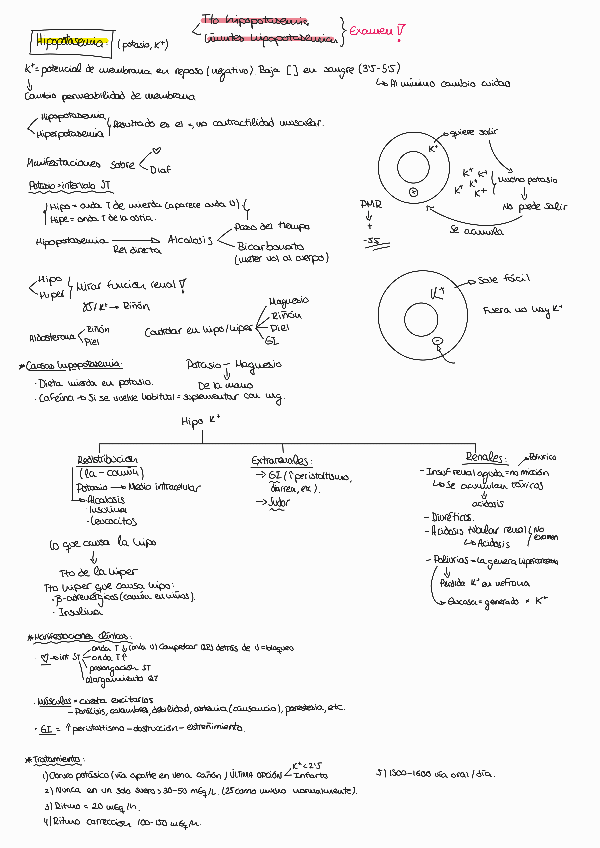 Tto hipopotasemia
Límites hipopotasemia
Examen!
Hipopotasemia: (potasio, K+)
K+= potencial de membrana en reposo (negativo) Baja [ ] en sangre (3.5-5.5)
Al mínimo cambio cuidao
Cambio permeabilidad de membrana
Hipopotasemia
Hiperpotasemia
Resultado es el =, no contractilidad muscular.
Manifestaciones sobre
Diaf
Potasio = intervalo ST
Hipo = onda T de mierda (aparece onda U)
Hipe = onda T de la ostia.
Hipopotasemia
Rel directa
Alcalosis
Paso del tiempo
Bicarbonato
(meter vol al cuerpo)
K+
quiere salir
K+ K+
K+ K+
K+
Mucho potasio
No puede salir
Se acumula
PMR
+
-55
Hipo
Hiper
Mirar función renal!
K+ → Riñón
Aldosterona
Riñón
Piel
Controlar en hipo/hiper
Magnesio
Riñón
Piel
GI
K+
Sale fácil
Fuera no hay K+
* Causas hipopotasemia:
· Dieta mierda en potasio.
· Cafeína → Si se vuelve habitual = suplementar con mg.
Potasio - Magnesio
De la mano
Hipo K+
Redistribución
(la - común)
Potasio → Medio intracelular
- Alcalosis
- Insulina
- Leucocitos
Lo que causa la hipo
Tto de la hiper
Tto hiper que causa hipo:
· β-adrenérgicos (común en niños).
· Insulina
Extrarrenales:
→ GI (↑ peristaltismo,
diarrea, etc).
→ Sudor
Renales:
- Insuf renal aguda = no micción
Se acumulan tóxicos
acidosis
- Diuréticos.
- Acidosis tubular renal
No examen
Acidosis
- Poliurias = La genera
Pérdida K+ en nefrona
K+
* Manifestaciones clínicas:
int ST
onda T ↓ (onda U)
detrás de U = bloqueo
onda T ↑
prolongación ST
alargamiento QT
· Músculos = cuesta excitarlos
- Parálisis, calambres, debilidad, astenia (cansancio), parestesia, etc.
· GI = ↑ peristaltismo - obstrucción - estreñimiento.
* Tratamiento:
1) Cloruro potásico (vía aparte en vena cañón) ÚLTIMA OPCIÓN
K+ < 2'5
Infarto
2) Nunca en un solo suero > 30-50 mEq/L. (25 como mucho normalmente).
3) Ritmo = 20 mEq/h.
4) Ritmo corrección 100-150 mEq/h.
5) 1500-1600 vía oral/día.